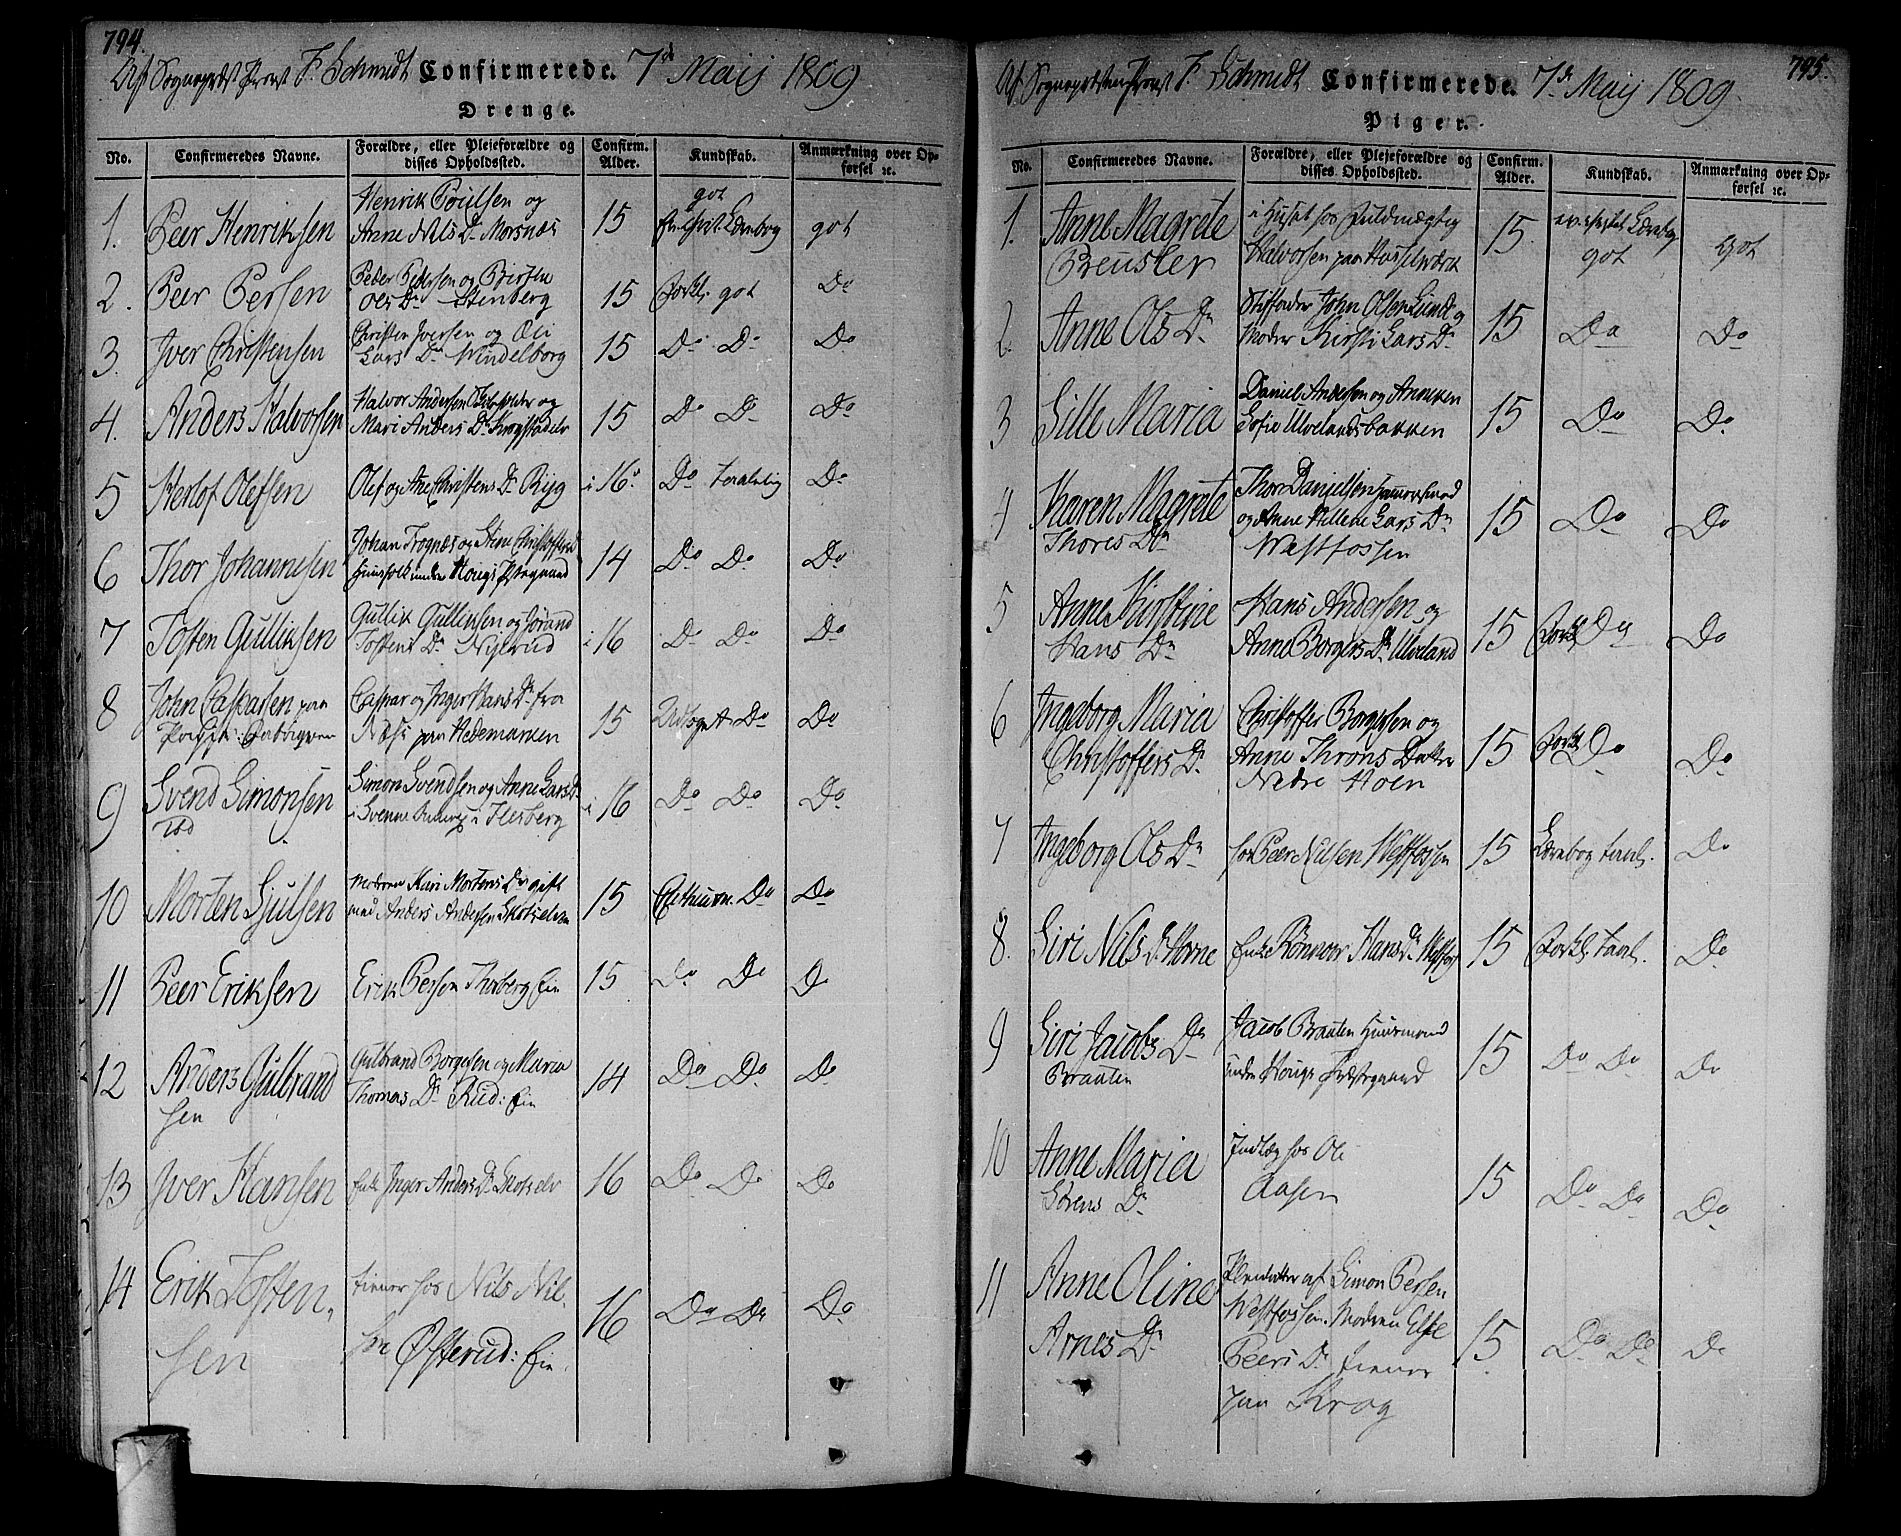 794.
Af Sognepræst Provst F. Schmidt Confirmerede. 7d Maij 1809
Drenge.
No. Confirmeredes Navne. Forældre, eller Plejeforældre og disses Opholdssted. Confirm. Alder. Kundskab. Anmærkning over Opførsel ec.
1. Peer Henriksen Henrik Poulsen og Anne Nils Dr Morsnæs 15 got Ev. Christ. Lærebog got
2. Peer Persen Peder Pedersen og Birthe Oles Dr Stenberg 15 Forkl. got Do
3. Iver Christensen Christen Iversen og Oli Lars Dr Windelborg 15 Do Do Do
4. Anders Halvorsen Halvor Andersen og Mari Anders Dr Krogstadelv 15 Do Do Do
5 Herlof Olefsen Olef og Ane Christens Dr Ryg i 16. Do taalelig Do
6 Thor Johannesen Johan Frognæs og Stine Christoffers Dr Huusfolk under Hougs Præstegaard 14 Do Do Do
7 Tosten Gulliksen Gullik Gulliksen og Jørand Tostens Dr Nijerud i 16 Do Do Do
8 John Caspersen paa Caspar og Inger Hans Dr fra Næss paa Hedemarken 15 Udtoget Do Do
9 Svend Simonsen Simon Svendsen og Anne Lars Dr i Svenne i Flesberg i 16 Do Do Do
10 Morten Sjulsen Moderen Kari Mortens Dr gift med Anders Andersen Skotselven 15 Do Do
11 Peer Eriksen Erik Persen Thorberg Ejn 15 Do Do Do
12 Anders Gulbrandsen Gulbrand Borgersen og Maria Thomas Dr Rud: Ejn 14 Do Do Do
13 Iver Hansen Enke Inger Anders Dr Skotselv 16 Do Do Do
14 Erik Tostensen tiener hos Nils Nilsen Østerud: Ejn. 16 Do Do Do
795.
Af Sognepræsten Provst F. Schmidt Confirmerede. 7de Maij 1809.
Piger.
No. Confirmeredes Navne. Forældre, eller Plejeforældre og disses Opholdssted. Confirm. Alder. Kundskab. Anmærkning over Opførsel ec.
1. Anne Magrete Preusler i Huset hos Fuldmægtig Halvorsen paa Hasselwærk 15. ev. christel. Lærebog got got
2. Anne Ols Dr Stiffader John Olsen Lunde og Moder Kirsti Lars Dr 15 Do Do
3 Sille Maria Daniel Andersen og Anniken Sofie Ulvelandsbakken 15 Do Do
4 Karen Magrete Thores Dr Thor Danielsen og Anne Hellene Lars Dr Westfossen 15 Do Do
5 Anne Kirstine Hans Dr Hans Andersen og Anne Borgers Dr Ulveland 15 Forkl. Do Do
6 Ingeborg Maria Christoffers Dr Christoffer Borgersen og Anne Throns Datter Nedre Hoen 15 Forkl. Do Do
7 Ingeborg Ols Dr hos Peer Nilsen Westfossen 15 Lærebog taal. Do
8. Siri Nils Dr Horne Enke Rønnoor Hans Dr Westfos 15 Forkl. taal. Do
9 Siri Jacobs Dr Braaten Jacob Braaten Huusmand under Hougs Præstegaard 15 Do Do Do
10 Anne Maria Sørens Dr Indlæg hos Ole Aasen 15 Do Do Do
11 Anne Oline Arnes Dr Pleiedatter af Simon Persen Westfossen. Moderen Else Peers Dr tiener paa Krog 15 Do Do Do